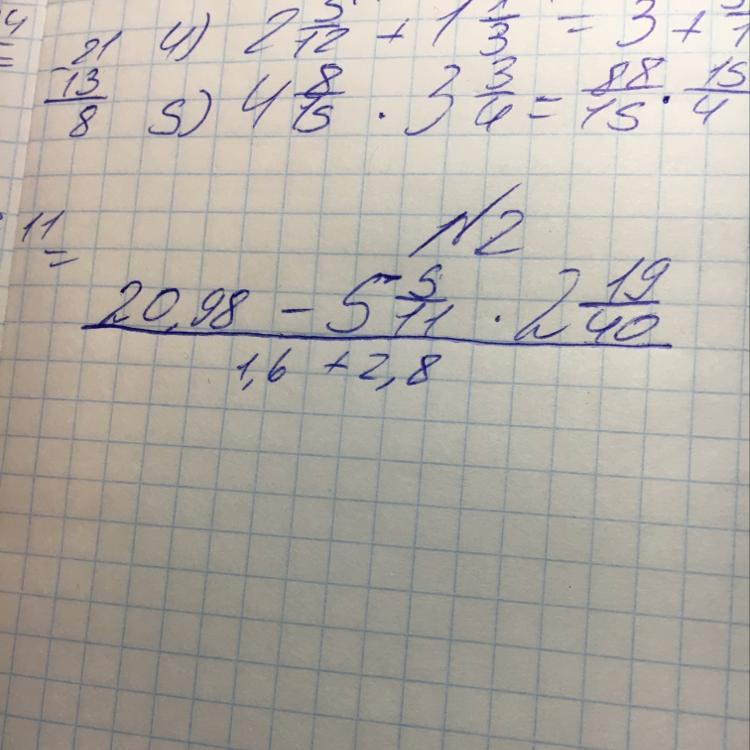 4) 2 5/12 + 1 1/3 = 3 +
21
-13
8
5) 4 8/15 · 3 3/4 = 88/15 · 15/4
11
=
№2
20,98 - 5 5/11 · 2 19/40
1,6 + 2,8